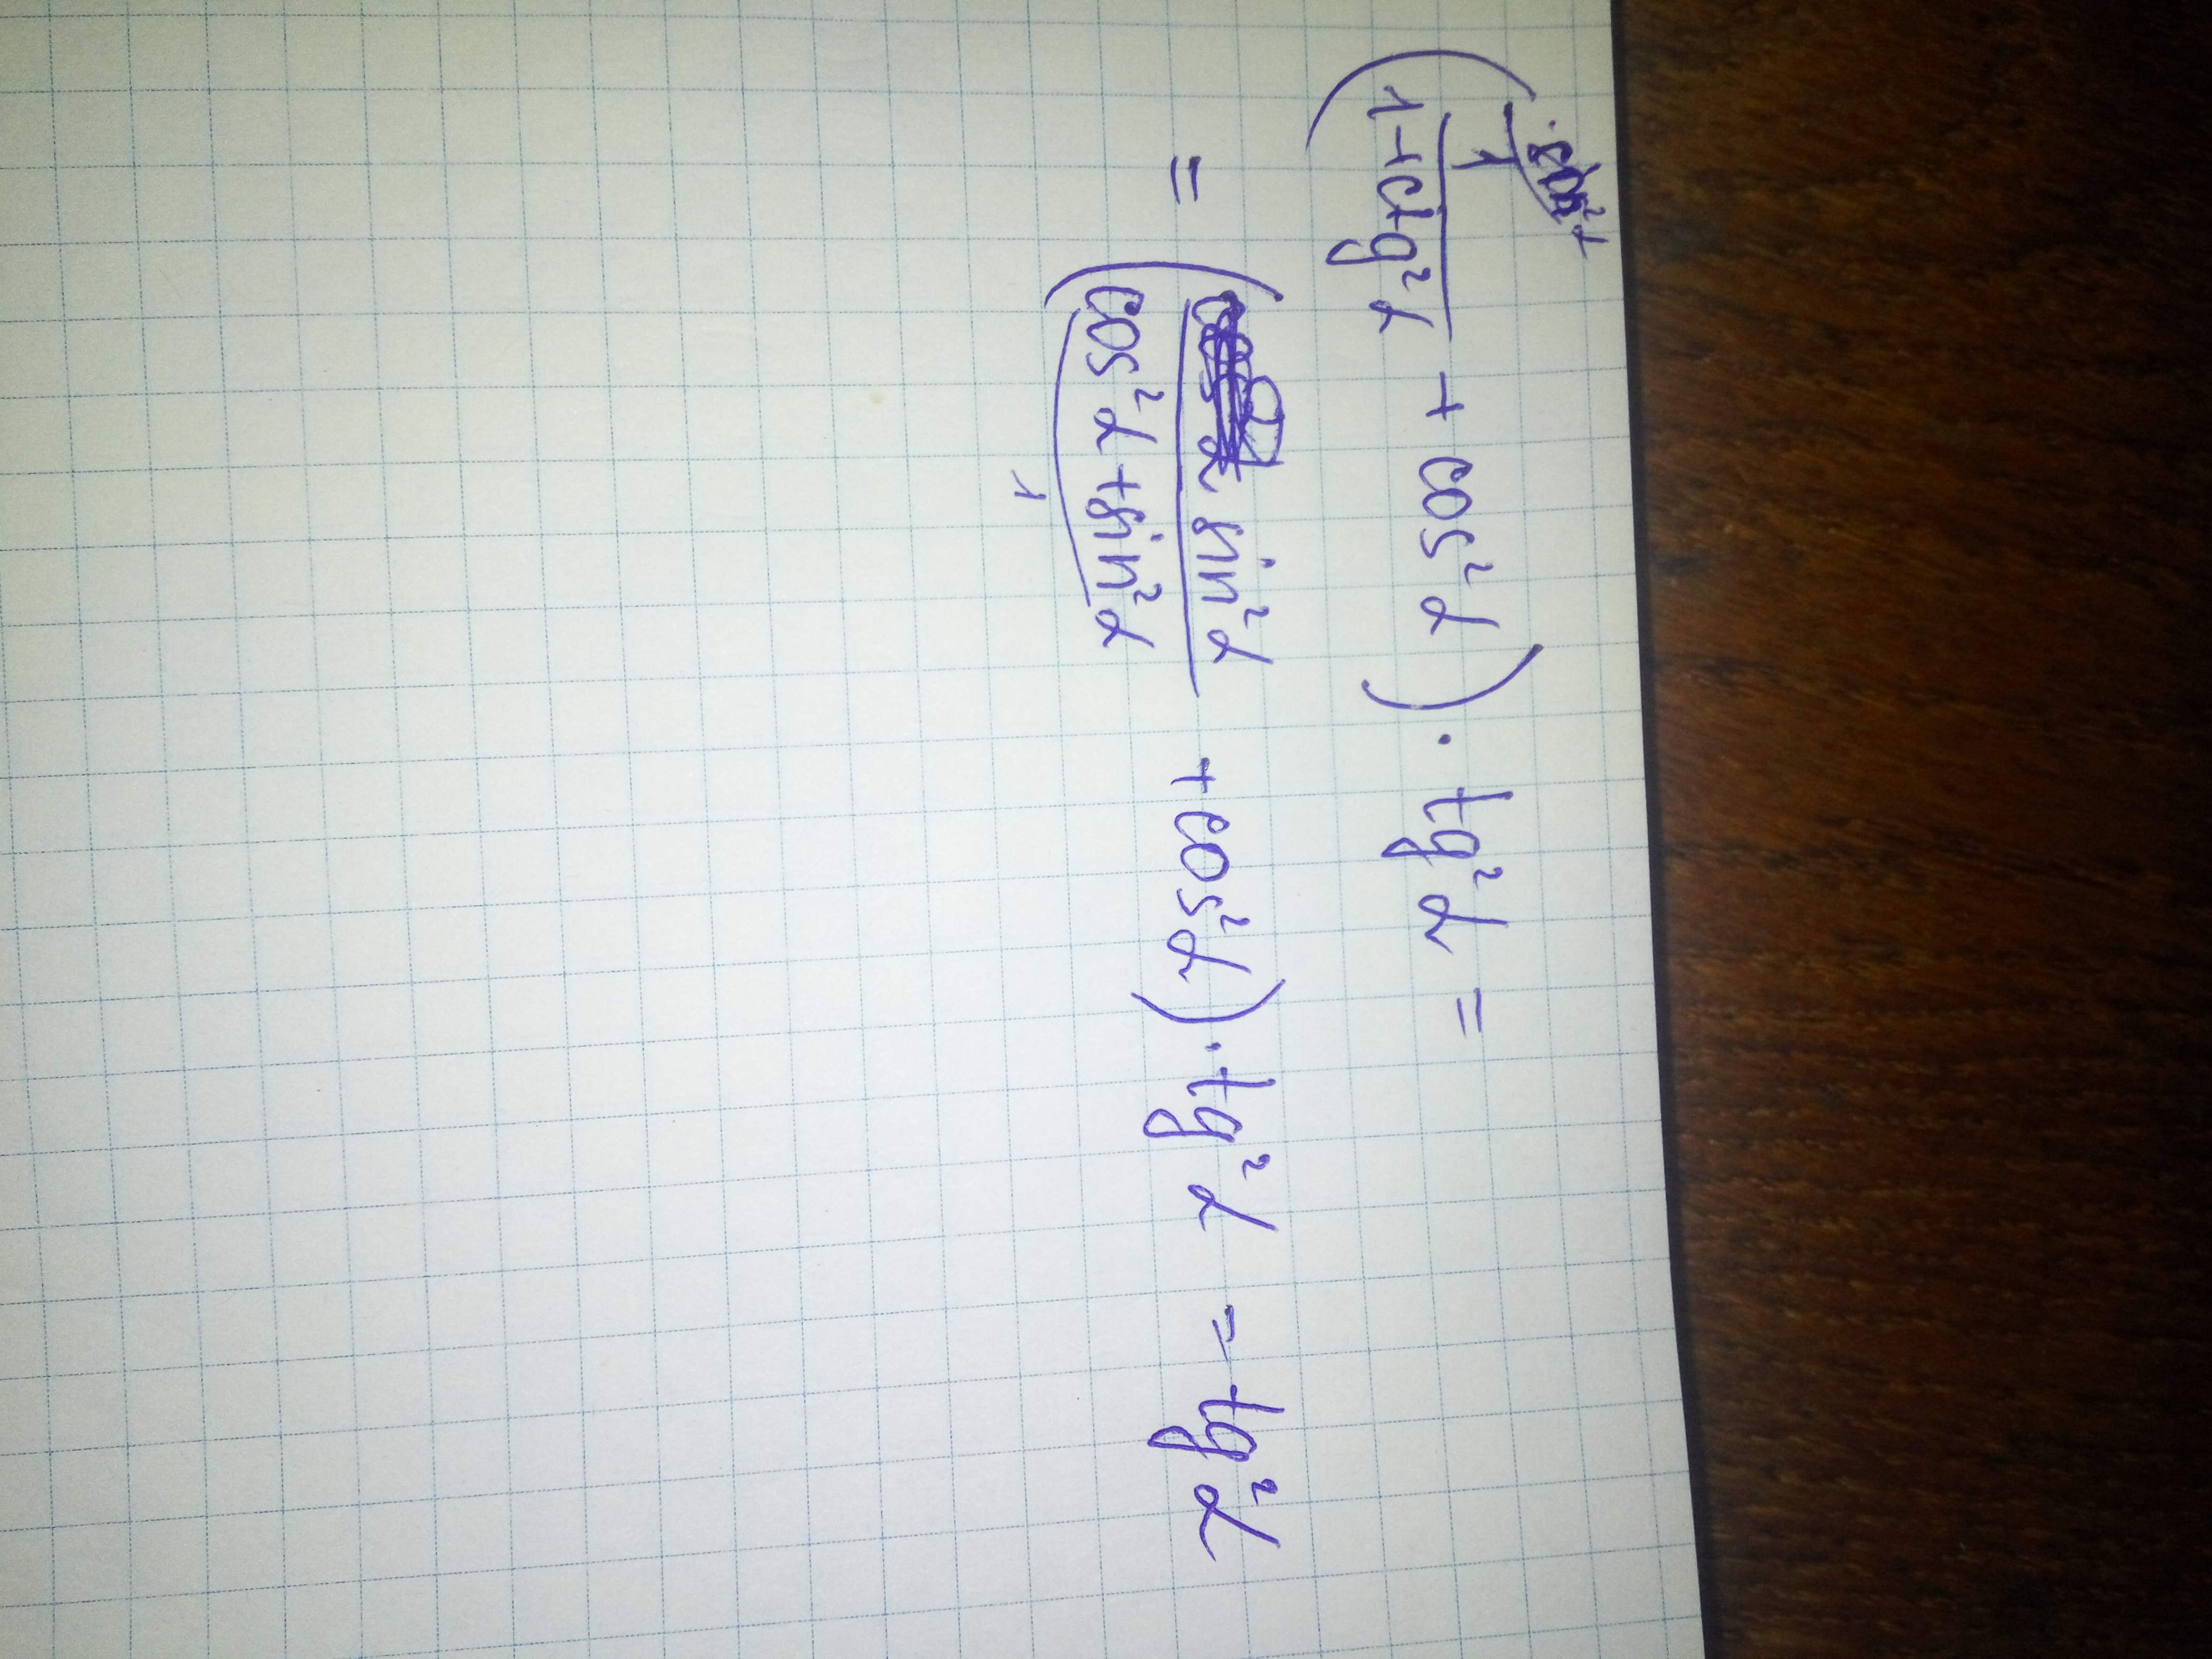 (1/(1+ctg²α) + cos²α) · tg²α =
= (sin²α/(cos²α + sin²α) + cos²α) · tg²α = tg²α
1